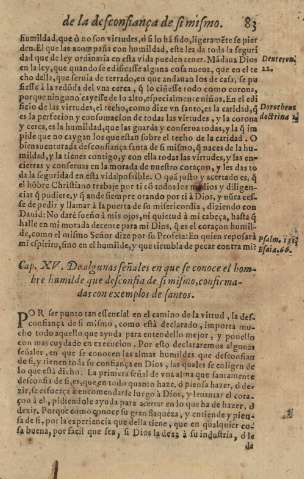 de la desconfiança de si mismo. 83
humildad, que ò no son virtudes, ò si lo hã sido, ligeramẽte se pier
den. El que las acompaña con humildad, este les da toda la seguri
dad que de ley ordinaria en esta vida pueden tener. Mãdaua Dios
en la ley, que quando se edificasse alguna casa nueua, que en el te
cho della, que seruia de terrado, en que andauan los de casa, se pu
siesse à la redõda del vna cerca, q̃ lo ciñesse todo como corona,
porque ninguno cayesse de lo alto, especialmente niños. En el edi
ficio de las virtudes, el techo, como dize vn santo, es la caridad, q̃
es la perfecion y consumacion de todas las virtudes, y la corona
y cerca, es la humildad, que las guarda y conserua todas, y la q̃ im
pide que no caygan los que estan sobre el techo de la caridad. O
bienauenturada desconfiança santa de si mismo, q̃ naces de la hu-
mildad, y la tienes contigo, y con ella todas las virtudes, y las en-
cierras y conseruas en la morada de nuestro coraçon, y les das to
da la seguridad en esta vida possible. O quã justo y acertado es, q̃
el hõbre Christiano trabaje por ti cõ todos los medios y diligen-
cias q̃ pudiere, y q̃ ande siempre orando por ti à Dios, y no ces-
se de pedir y llamar à la puerta de su misericordia, diziendo con
Dauid: No darè sueño à mis ojos, ni quietud à mi cabeça, hasta q̃
halle en mi morada decente para mi Dios, q̃ es el coraçon humil-
de, como el mismo Señor dize por su Profeta: En quien reposarà
mi espiritu, sino en el humilde, y que tiembla de pecar contra mi?
Deuteron.
22.
Dorotheus
doctrina
Psalm. 131
Esaia. 66.
Cap. XV. De algunas señales en que se conoce el hom-
bre humilde que desconfia de si mismo, confirma-
das con exemplos de santos.
POR ser punto tan essencial en el camino de la virtud, la des-
confiança de si mismo, como està declarado, importa mu-
cho todo aquello que ayuda para entendello mejor, y ponello
con mas cuydado en execucion. Por esto declararemos algunas
señales, en que se conocen las almas humildes que desconfian
de si, y tienen toda su confiança en Dios, las quales se coligen de
lo que està dicho. La primera señal de vna alma que santamente
desconfia de si es, que en todo quanto haze, ò piensa hazer, ò de-
zir, se esfuerça à encomendarse luego à Dios, y leuantar el cora-
çon à el, pidiendole ayuda para acertar en lo que ha de hazer, ò
dezir. Porque como conoce su gran flaqueza, y entiende y pien-
sa de si, por la experiencia que della tiene, que en qualquier co-
sa buena, por facil que sea, si Dios la dexa à su industria, ò le
da